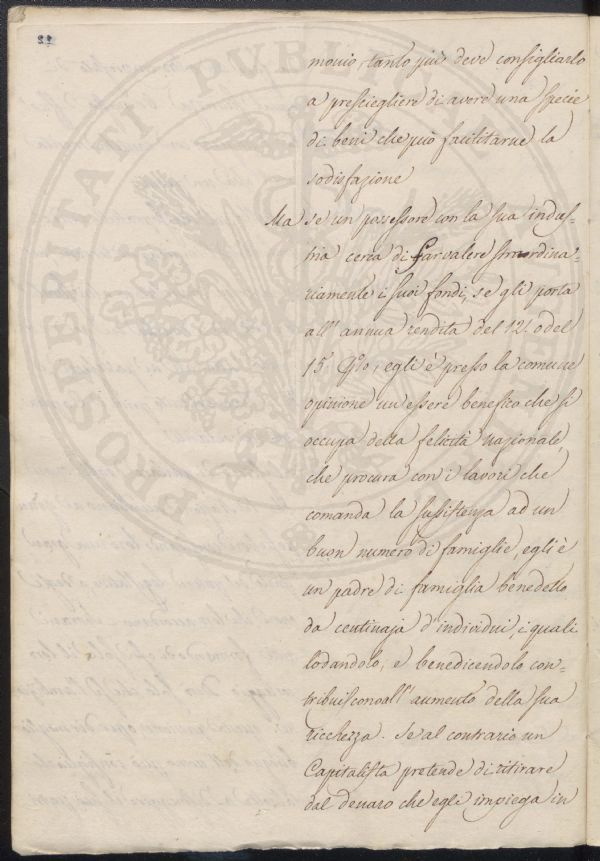 monio, tanto più deve consigliarlo
a presciegliere di avere una specie
di beni che può facilitarne la
sodisfazione
Ma se un possessore con la sua indus-
tria cerca di far valere straordina-
riamente i suoi fondi, se gli porta
all'annua rendita del 12. o del
15 %, egli è presso la comune
opinione un essere benefico che si
occupa della felicità nazionale,
che procura con i lavori che
comanda la sussistenza ad un
buon numero di famiglie, egli è
un padre di famiglia benedetto
da centinaja d'individui, i quali
lodandolo, e benedicendolo con-
tribuiscono all'aumento della sua
ricchezza. Se al contrario un
Capitalista pretende di ritirare
dal denaro che egli impiega in
PROSPERITATI PVBLICAE